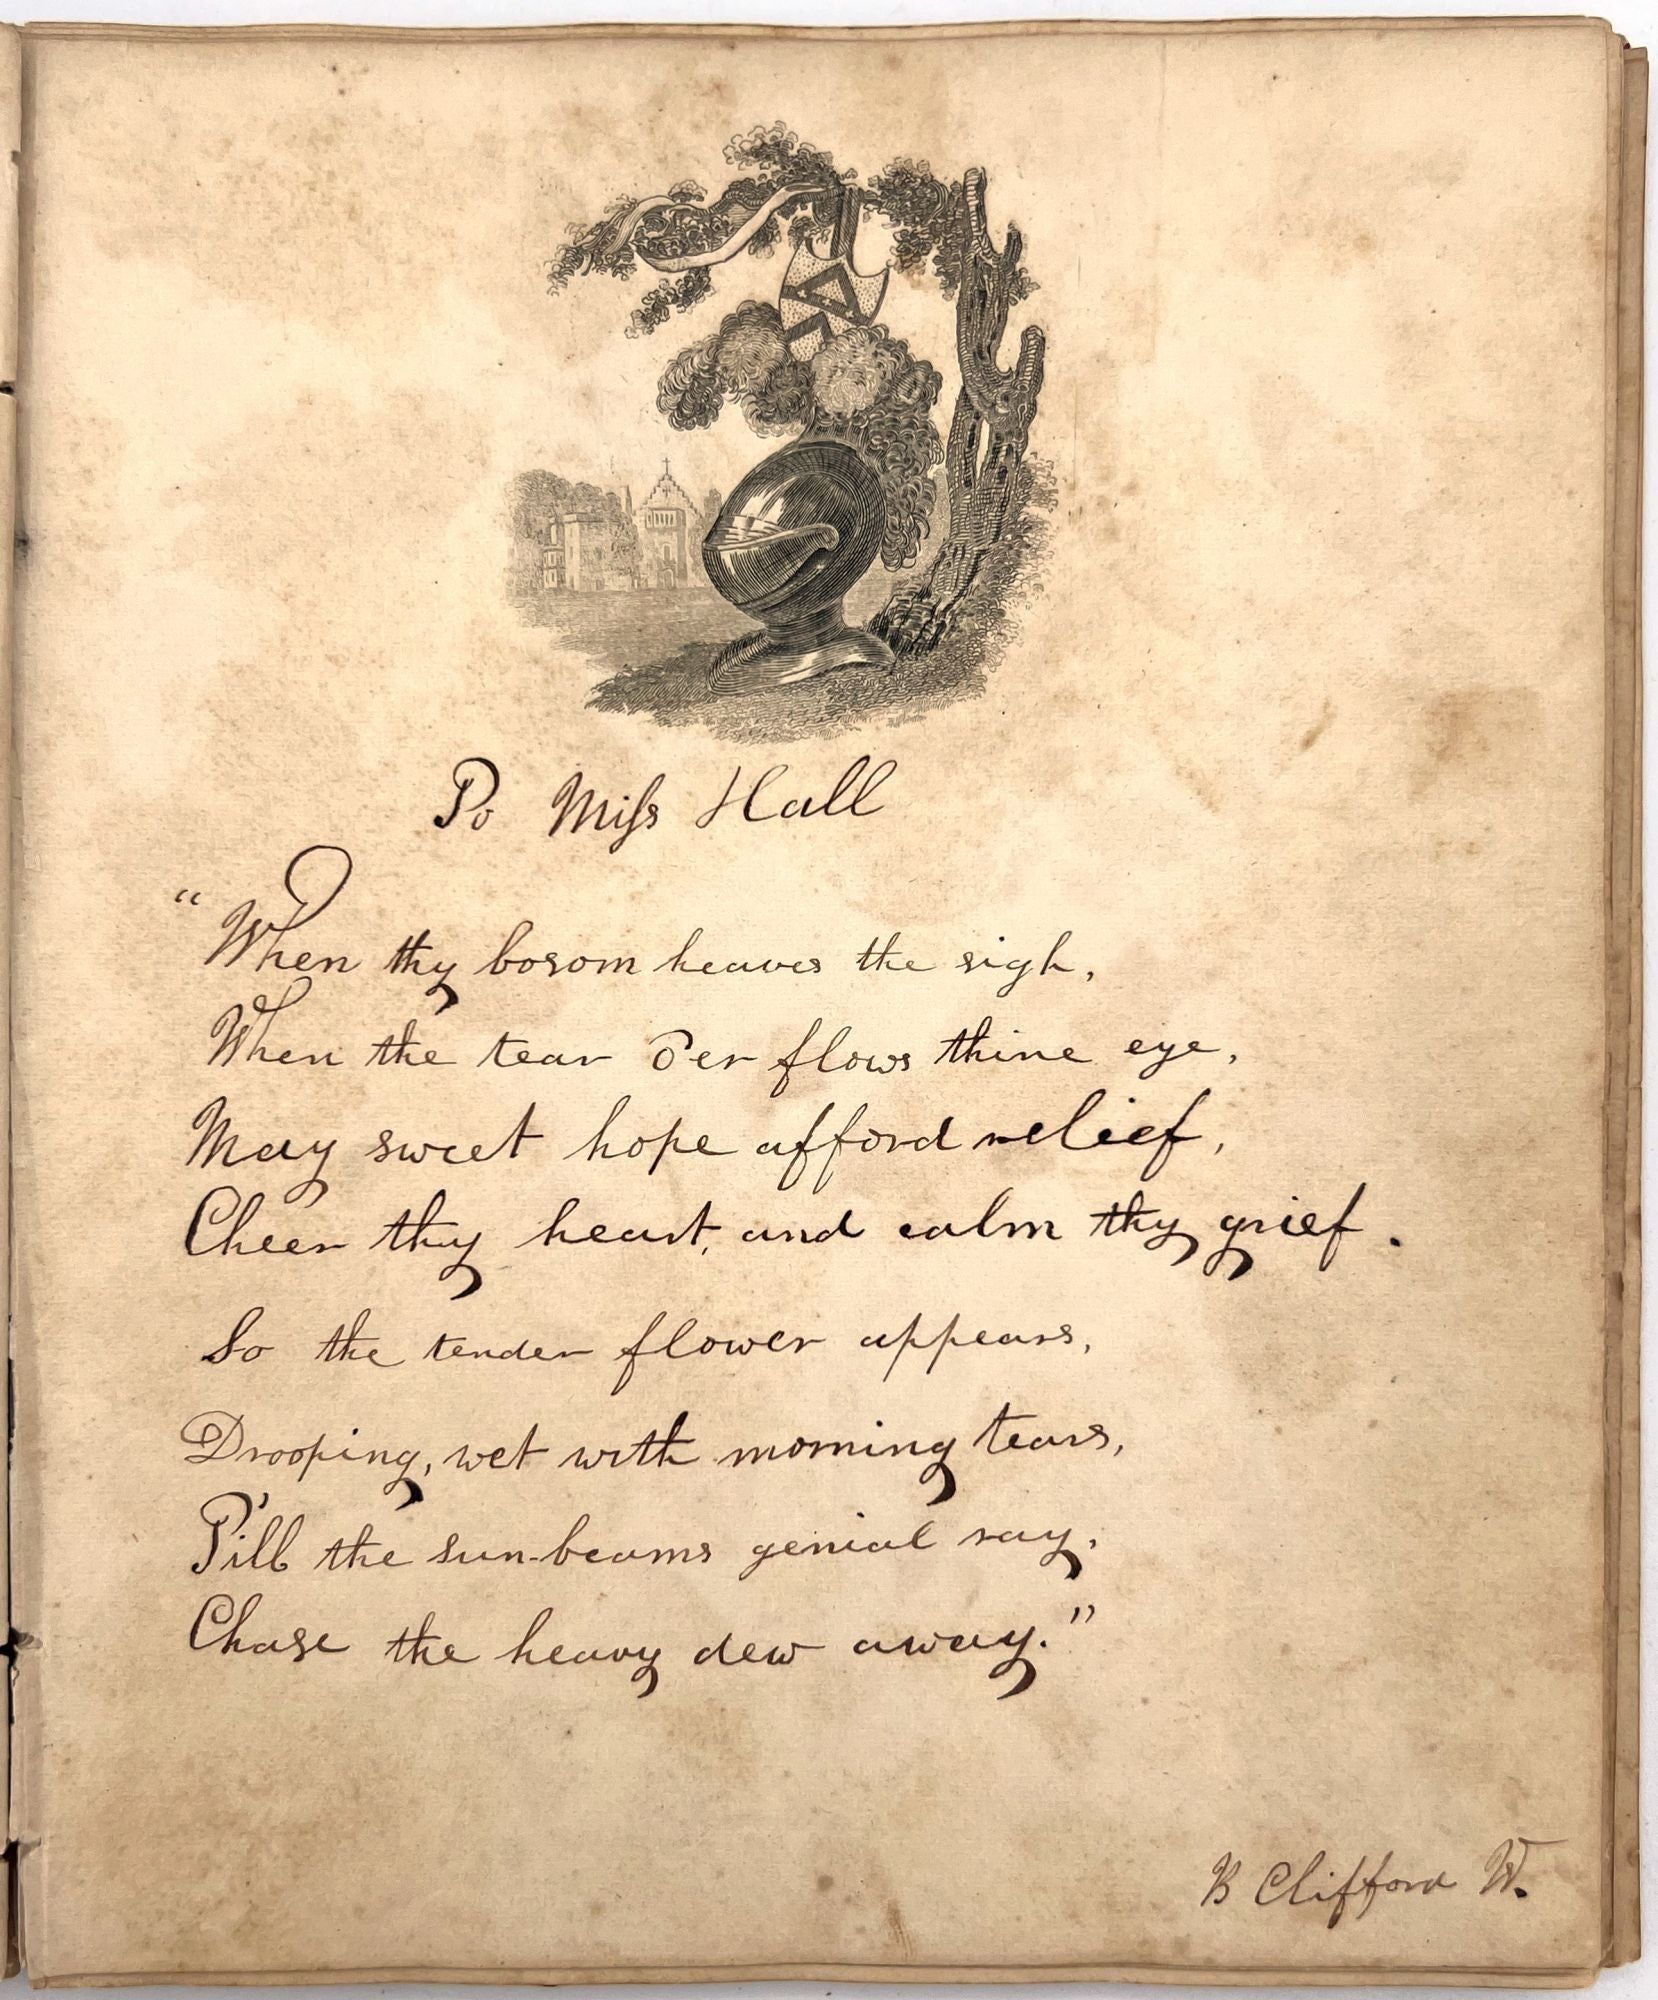 To Miss Hall
"When thy bosom heaves the sigh,
When the tear o'er flows thine eye,
May sweet hope afford relief,
Cheer thy heart, and calm thy grief.
So the tender flower appears,
Drooping, wet with morning tears,
'Till the sun-beams genial ray,
Chase the heavy dew away."
B Clifford W.